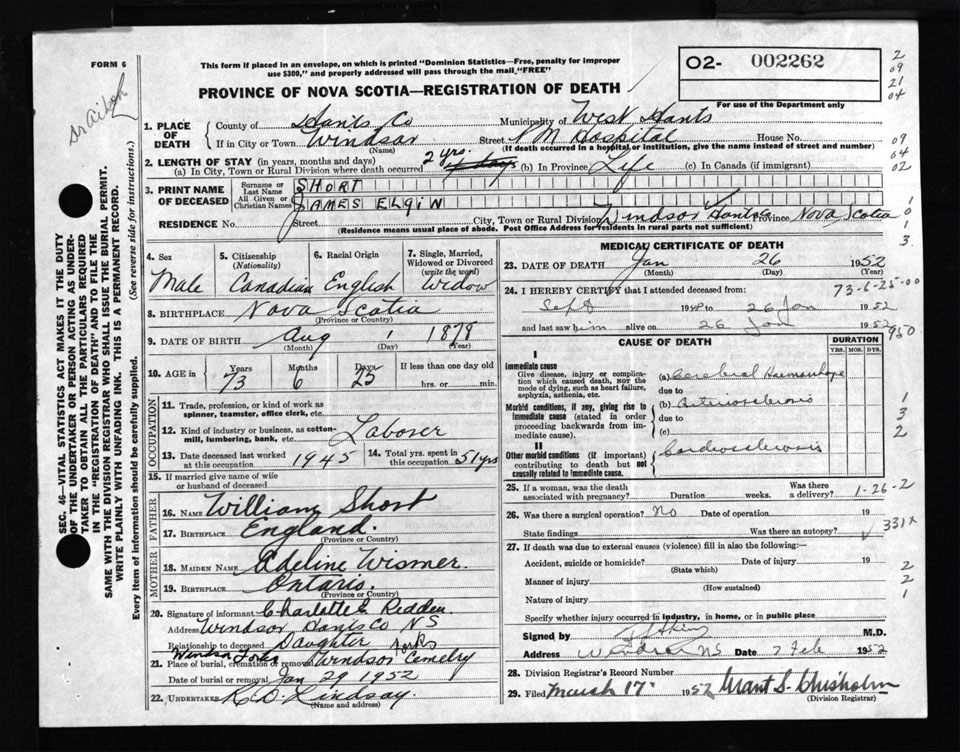 FORM 6
This form if placed in an envelope, on which is printed "Dominion Statistics—Free, penalty for improper
use $300," and properly addressed will pass through the mail "FREE"
PROVINCE OF NOVA SCOTIA—REGISTRATION OF DEATH
O2- 002262
For use of the Department only
2
09
21
04
09
04
02
1. PLACE OF DEATH
County of Hants Co Municipality of West Hants
If in City or Town Windsor Street N M Hospital House No.
(Name) (If death occurred in a hospital or institution, give the name instead of street and number)
2. LENGTH OF STAY (in years, months and days)
(a) In City, Town or Rural Division where death occurred 2 yrs. (b) In Province Life (c) In Canada (if immigrant)
3. PRINT NAME OF DECEASED
Surname or Last Name SHORT
All Given or Christian Names JAMES ELGIN
RESIDENCE No. Street City, Town or Rural Division Windsor Hants Province Nova Scotia
(Residence means usual place of abode. Post Office Address for residents in rural parts not sufficient)
1
0
1
3
4. Sex Male
5. Citizenship (Nationality) Canadian
6. Racial Origin English
7. Single, Married, Widowed or Divorced (write the word) Widow
8. BIRTHPLACE Nova Scotia
(Province or Country)
9. DATE OF BIRTH Aug 1 1878
(Month) (Day) (Year)
10. AGE in Years Months Days If less than one day old
73 6 25 hrs. or min.
OCCUPATION
11. Trade, profession, or kind of work as
spinner, teamster, office clerk, etc.
12. Kind of industry or business, as cotton-
mill, lumbering, bank, etc. Laborer
13. Date deceased last worked at this occupation 1945
14. Total yrs. spent in this occupation 51 yrs
15. If married give name of wife
or husband of deceased
FATHER
16. NAME William Short
17. BIRTHPLACE England.
(Province or Country)
MOTHER
18. MAIDEN NAME Adeline Wismer.
19. BIRTHPLACE Ontario.
(Province or Country)
20. Signature of informant Charlotte E Redden.
Address Windsor Hants Co N S
Relationship to deceased Daughter
Windsor Forks Forks
21. Place of burial, cremation or removal Windsor Cemetry
Date of burial or removal Jan 29 1952
22. UNDERTAKER K. D. Lindsay.
(Name and address)
MEDICAL CERTIFICATE OF DEATH
23. DATE OF DEATH Jan 26 1952
(Month) (Day) (Year)
24. I HEREBY CERTIFY that I attended deceased from: 73-6-25-00
Sept 19 to 26 Jan 1952
and last saw him alive on 26 Jan 1952
950
CAUSE OF DEATH DURATION
YRS. MOS. DYS.
I
Immediate cause
Give disease, injury or complica-
tion which caused death, not the
mode of dying, such as heart failure,
asphyxia, asthenia, etc.
(a) Cerebral Haemorrhage
due to
Morbid conditions, if any, giving rise to
immediate cause (stated in order
proceeding backwards from im-
mediate cause).
(b) Arteriosclerosis
due to
(c)
II
Other morbid conditions (if important)
contributing to death but not
causally related to immediate cause.
Cardiosclerosis
1
3
2
25. If a woman, was the death
associated with pregnancy? Duration weeks. Was there a delivery?
1-26-2
26. Was there a surgical operation? No Date of operation 19
State findings Was there an autopsy?
331X
27. If death was due to external causes (violence) fill in also the following:—
Accident, suicide or homicide? Date of injury 19
(State which)
Manner of injury
(How sustained)
Nature of injury
2
2
1
Specify whether injury occurred in industry, in home, or in public place
Signed by M.D.
Address Windsor NS Date 7 Feb 1952
28. Division Registrar's Record Number
29. Filed March 17 1952 Grant S. Chisholm
(Division Registrar)
SEC. 46—VITAL STATISTICS ACT MAKES IT THE DUTY
OF THE UNDERTAKER OR PERSON ACTING AS UNDER-
TAKER TO OBTAIN ALL THE PARTICULARS REQUIRED
IN THE "REGISTRATION OF DEATH" AND TO FILE THE
SAME WITH THE DIVISION REGISTRAR WHO SHALL ISSUE THE BURIAL PERMIT.
WRITE PLAINLY WITH UNFADING INK. THIS IS A PERMANENT RECORD.
Every item of information should be carefully supplied. (See reverse side for instructions.)